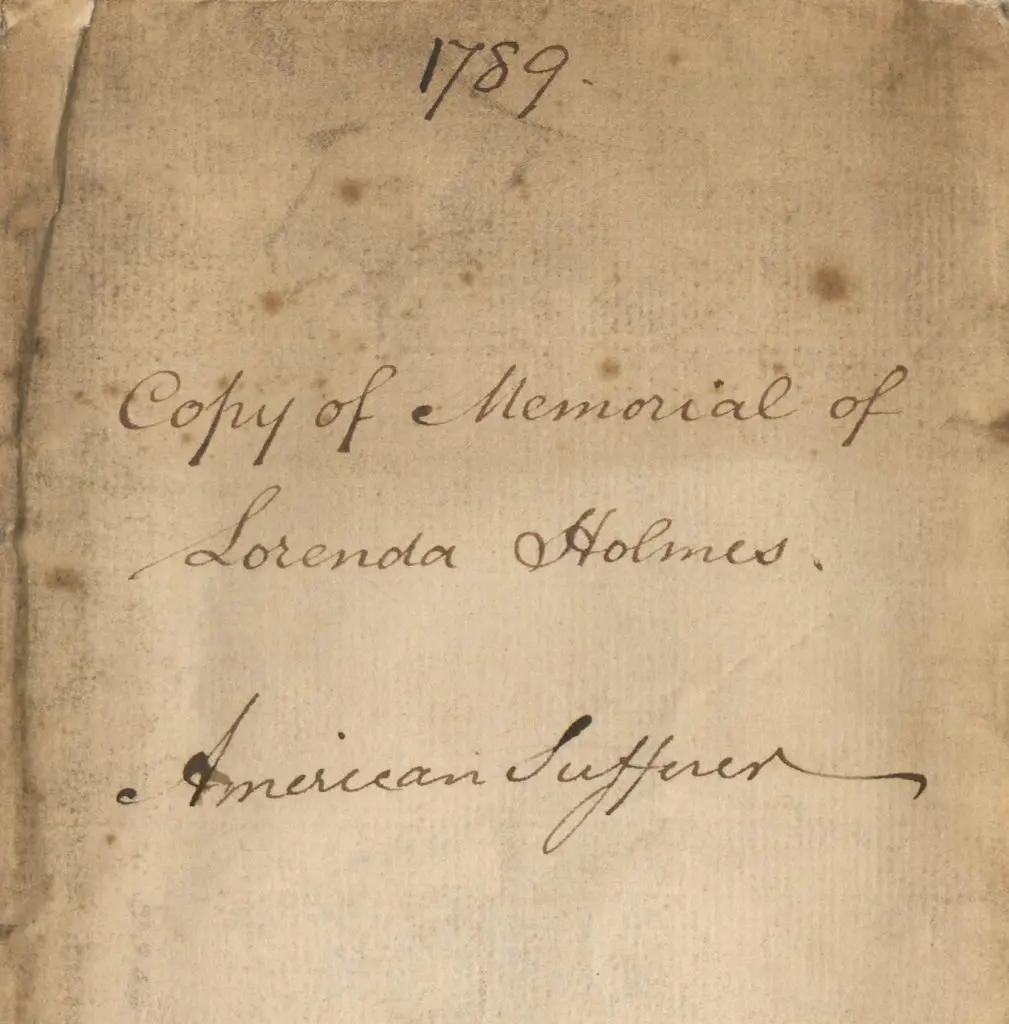 1789.
Copy of Memorial of
Lorenda Holmes.
American Sufferer